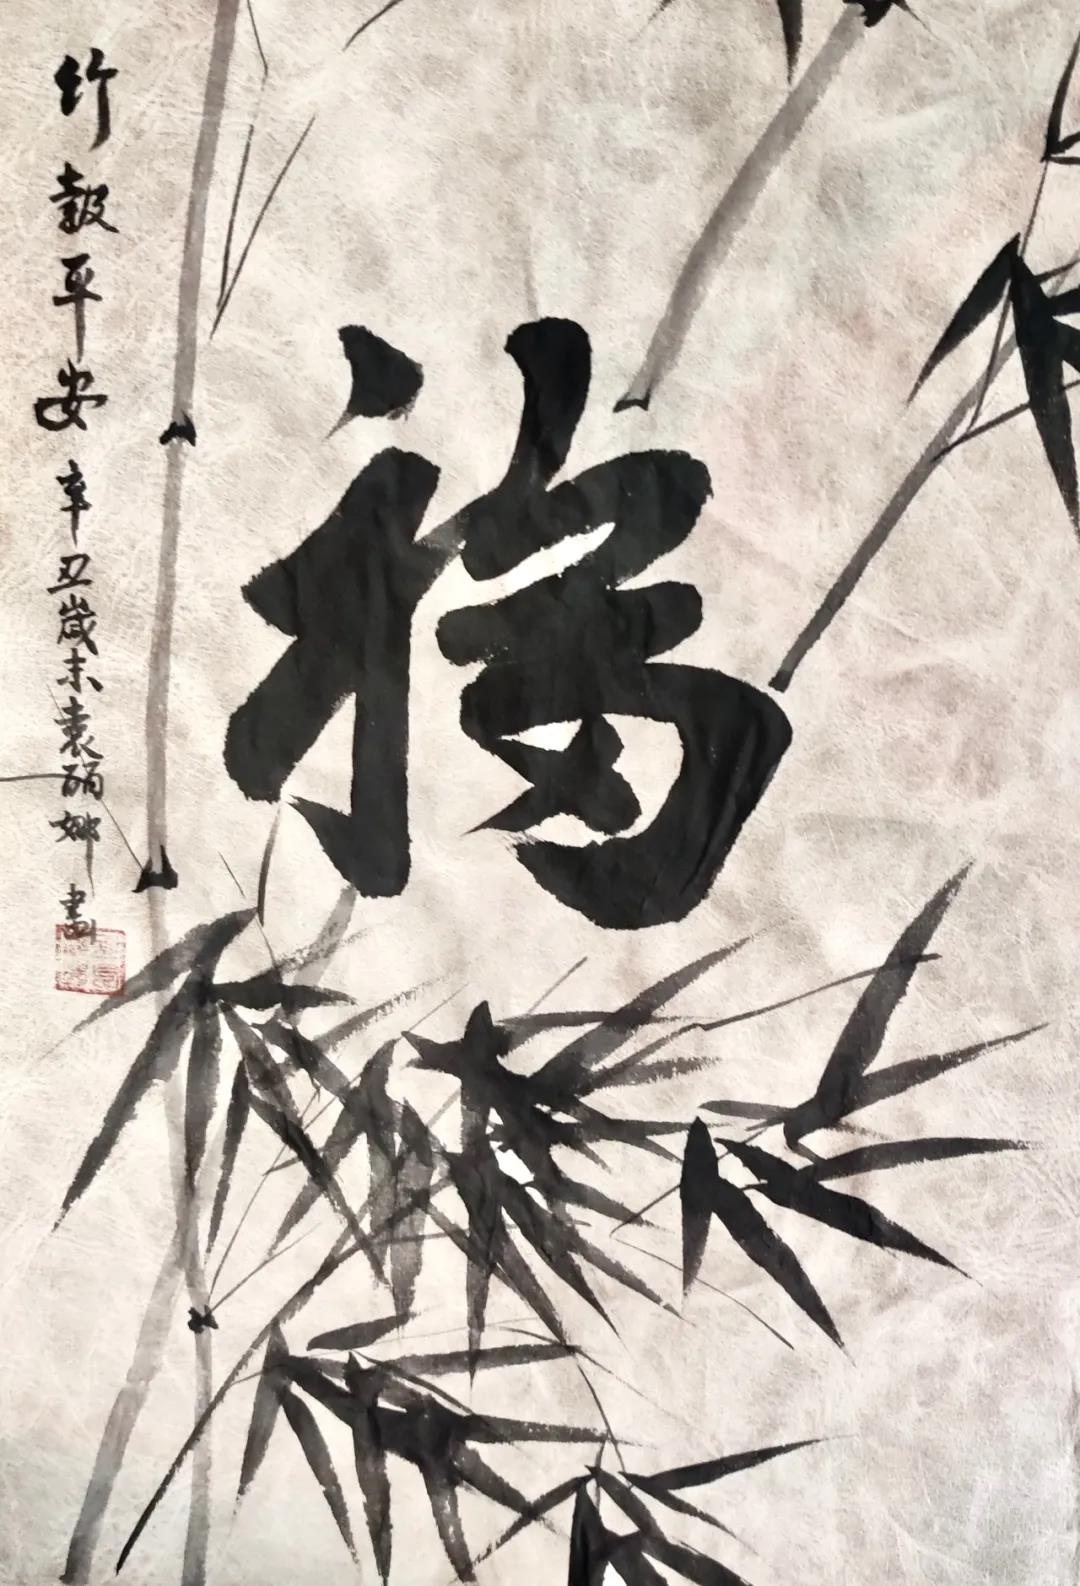 福
竹報平安 辛丑歲末袁丽娜畫